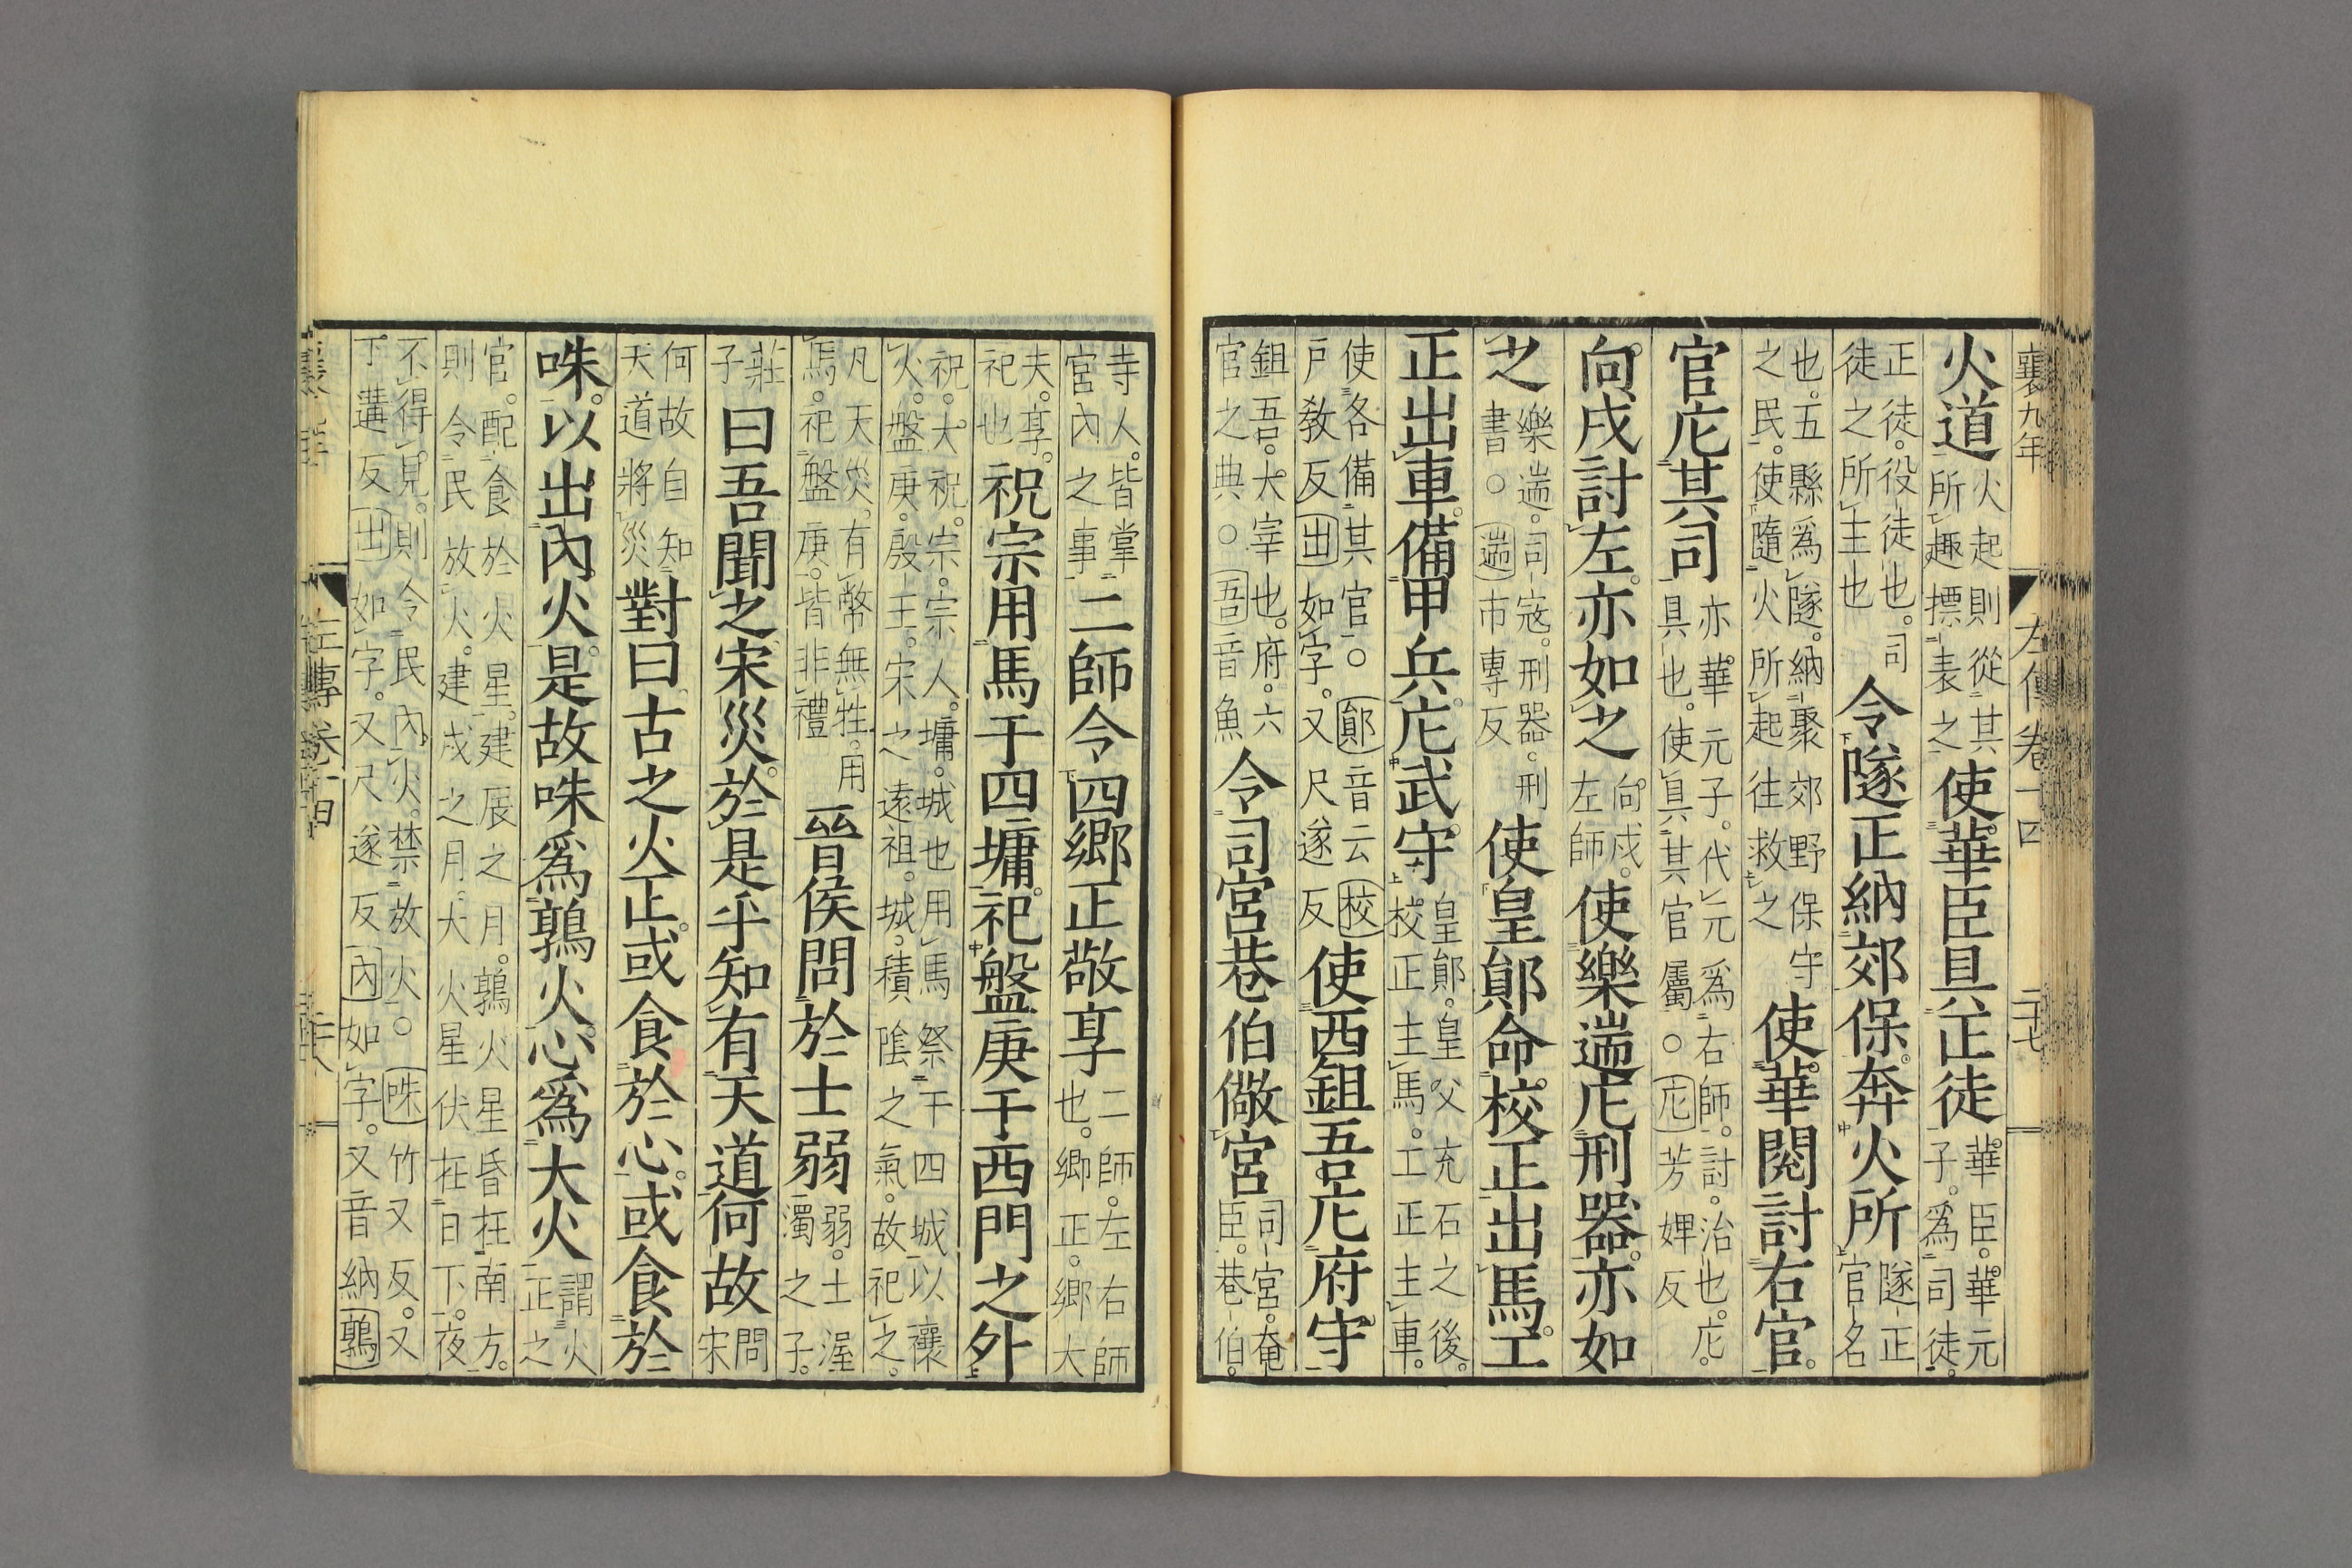 襄九年　左傳卷十四　二十七
火道火起則從其所趣摽表之使華臣具正徒華臣華元子爲司徒
正徒役徒也司徒之所主也令隧正納郊保奔火所隧正官名
也五縣爲隧納聚郊野保守之民使隨火所起往救之使華閱討右官
官庀其司亦華元子代元爲右師討治也庀具也使具其官屬○庀芳婢反
向戌討左亦如之向戌左師使樂遄庀刑器亦如
之樂遄司寇刑器刑書○遄市專反使皇鄖命校正出馬工
正出車備甲兵庀武守皇鄖皇父充石之後校正主馬工正主車
使各備其官○鄖音云校戶教反出如字又尺遂反使西鉏吾庀府守
鉏吾大宰也府六官之典○吾音魚令司宮巷伯儆宮司宮奄臣巷伯
寺人皆掌宮內之事二師令四鄉正敬享二師左右師也鄉正鄉大
夫享祀也祝宗用馬于四墉祀盤庚于西門之外
祝大祝宗宗人墉城也用馬祭于四城以禳火盤庚殷王宋之遠祖城積陰之氣故祀之
凡天災有幣無牲用馬祀盤庚皆非禮晉侯問於士弱弱士渥濁之子
莊子曰吾聞之宋災於是乎知有天道何故問宋
何故自知天道將災對曰古之火正或食於心或食於
咮以出內火是故咮爲鶉火心爲大火謂火正之
官配食於火星建辰之月鶉火星昏在南方則令民放火建戌之月大火星伏在日下夜
不得見則令民內火禁放火○咮竹又反又丁遘反出如字又尺遂反內如字又音納鶉
左傳卷十四